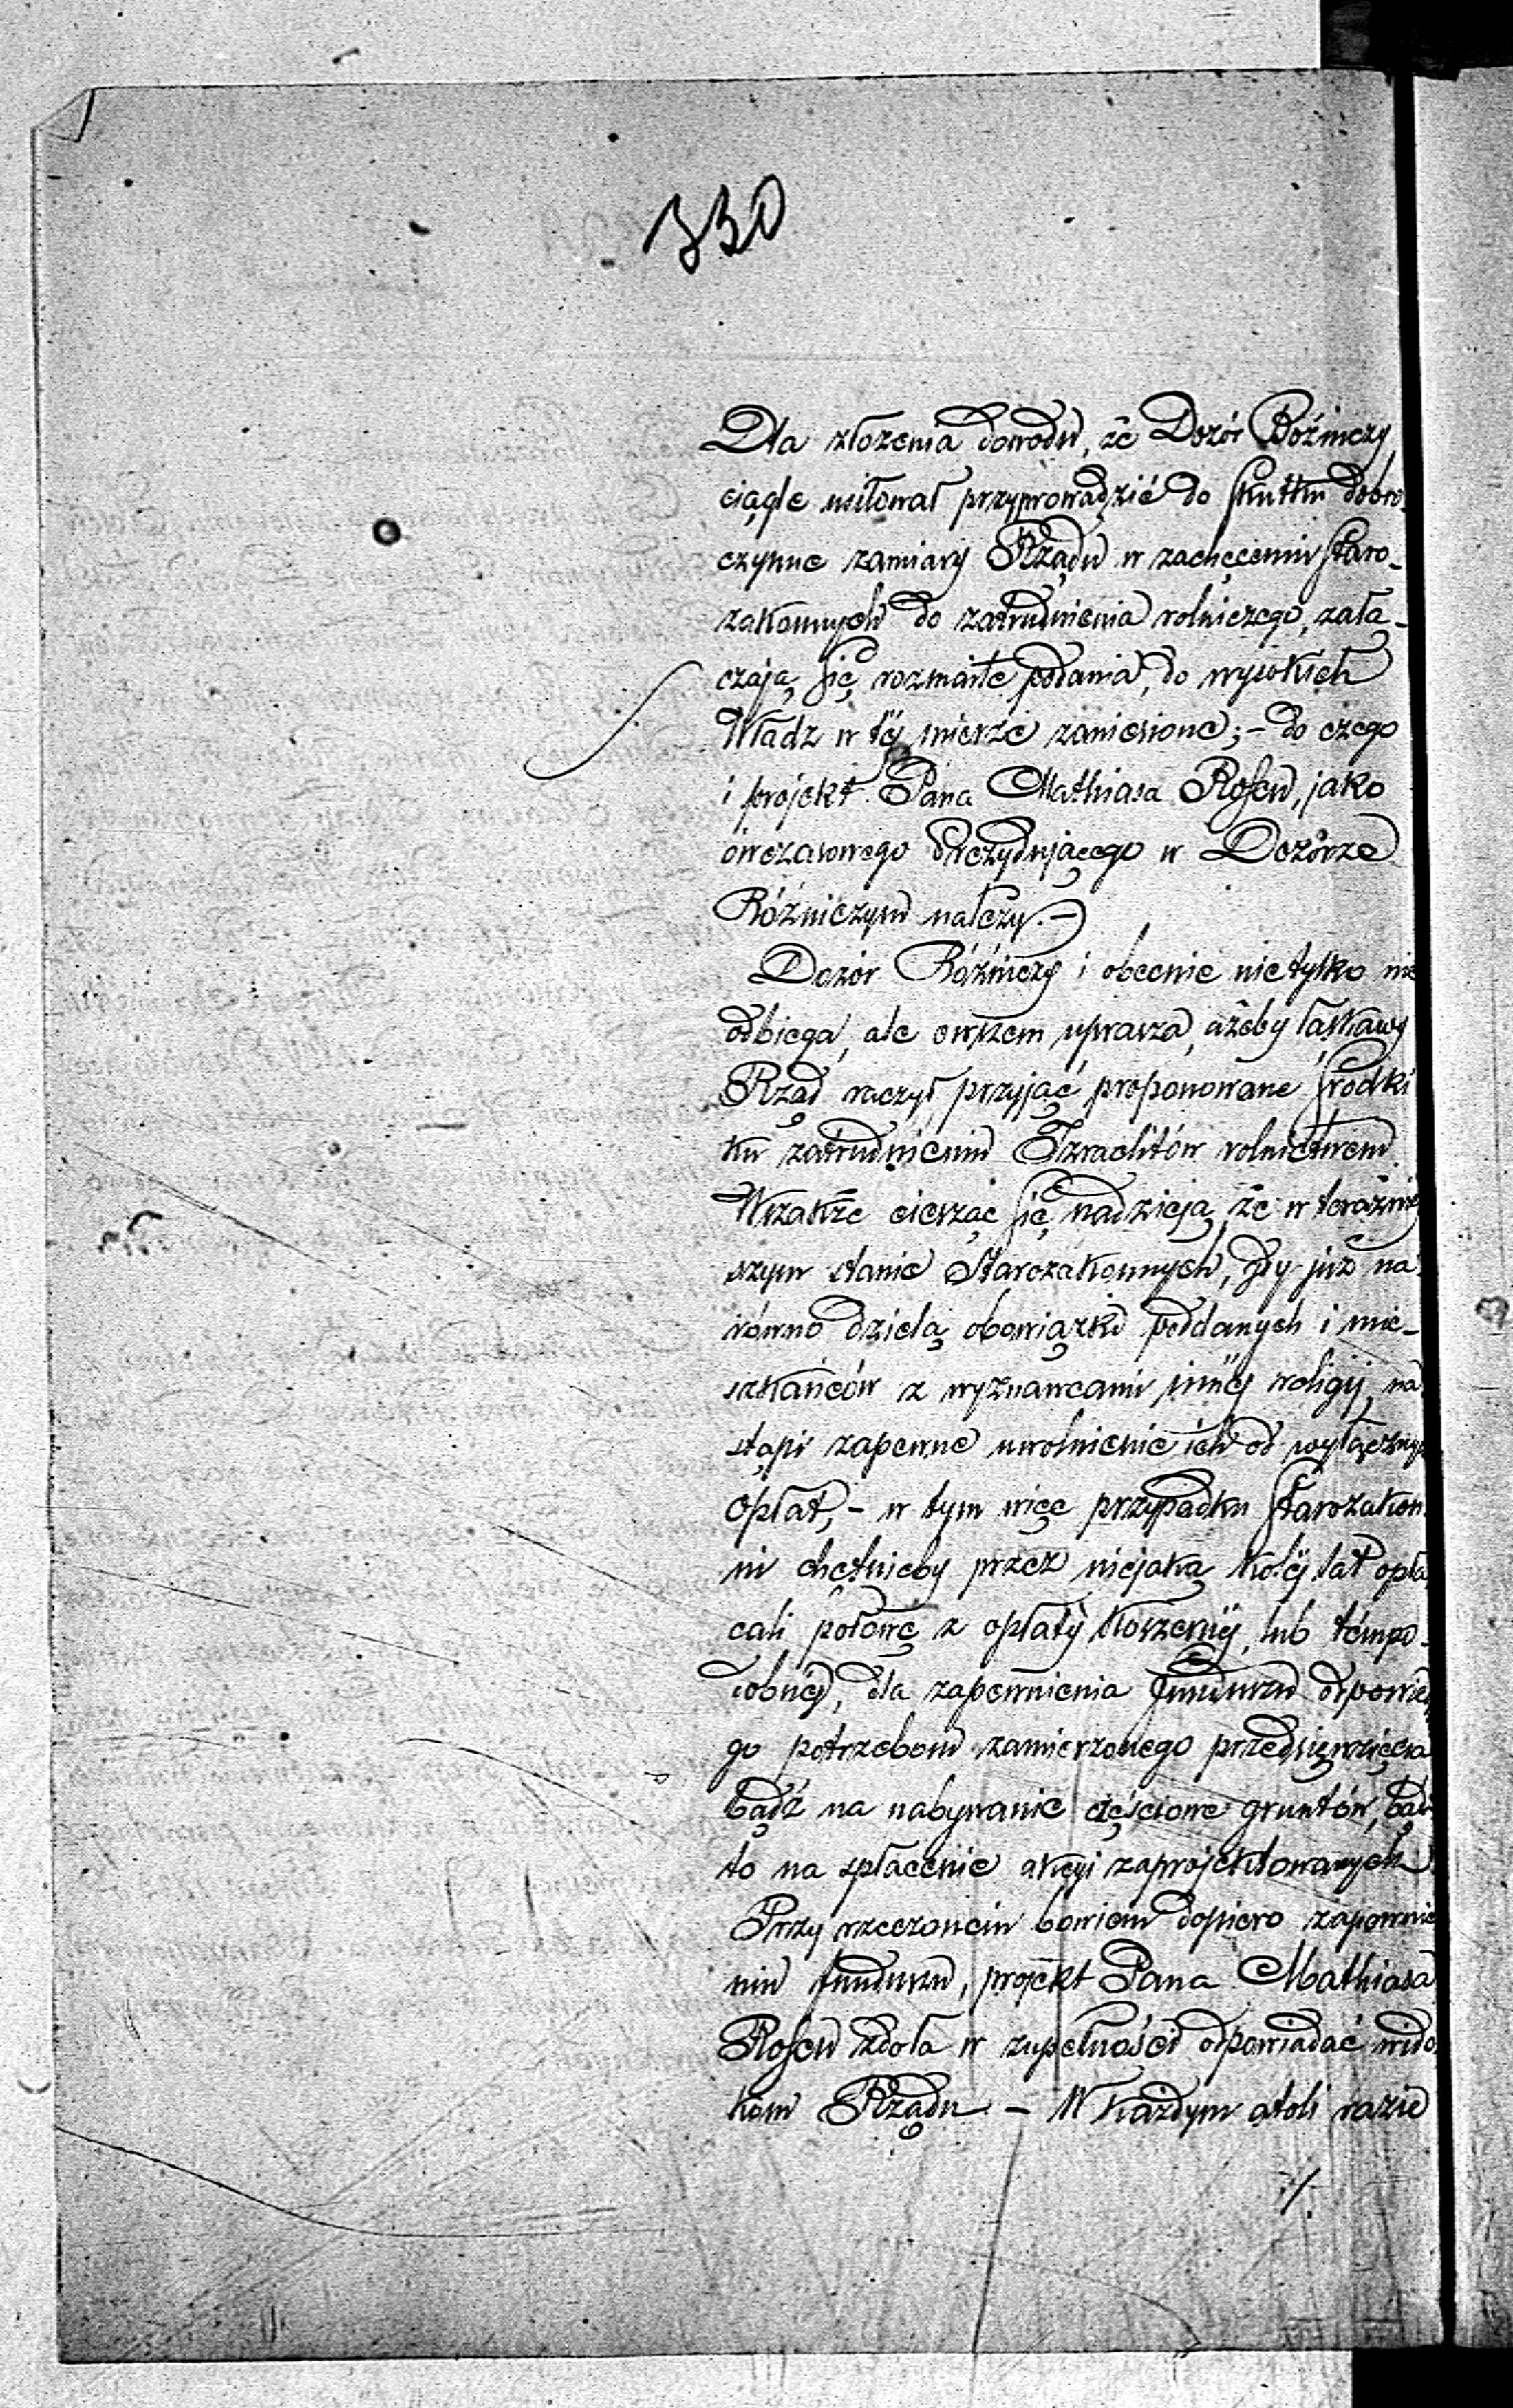 330
Dla złożenia dowodu, że Dozór Bóźniczy
ciągle usiłował przyprowadzić do skutku dobro-
czynne zamiary Rządu w zachęceniu Staro-
zakonnych do zatrudnienia rolniczego, załą-
czają się rozmaite podania, do wysokich
Władz w téj mierze zaniesione; - do czego
i projekt Pana Mathiasa Rosen, jako
ówczasowego Prezydującego w Dozórze
Bóźniczym należy. -
Dozór Bóźniczy i obecnie nie tylko nie
odbiega, ale owszem uprasza, ażeby łaskawy
Rząd raczył przyjąć proponowane środki
ku zatrudnieniu Izraelitów rolnictwem.
Wszakże ciesząc się nadzieją, że w teraźniej
szym stanie Starozakonnych, gdy już na
równo dzielą obowiązki poddanych i mie-
szkańców z wyznawcami innéj religij, na
stąpi zapewne uwolnienie ich od wyłącznych
opłat, - w tym więc przypadku Starozakon
ni chętnieby przez niejaką koléj lat opła
cali połowę z opłaty koszernéj, lub témpo-
dobnéj, dla zapewnienia funduszu odpowie
go potrzebom zamierzonego przedsięwzięcia
bądź na nabywanie częściowe gruntów, bądź
to na spłacenie akcyi zaprojektowanych.
Przy rzeczonem bowiem dopiero zapewnie
niu funduszu, projekt Pana Mathiasa
Rosen zdoła w zupełności odpowiadać wido
kom Rządu. - W każdym atoli razie
./.